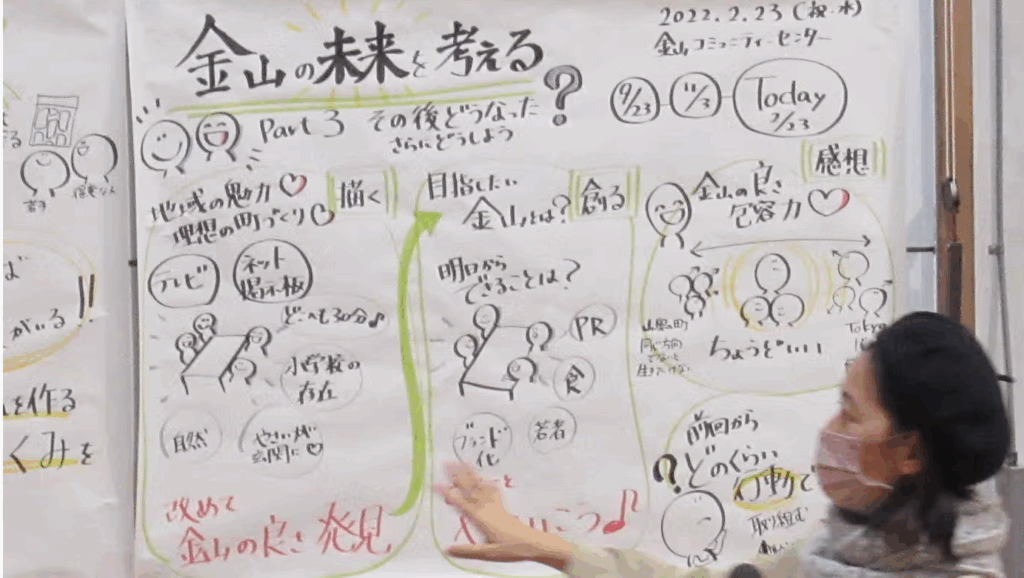 金山の未来を考える?
2022.2.23(祝・水)
金山コミュニティーセンター
9/23
11/3
Today
2/23
Part 3 その後どうなった
さらにどうしよう
地域の魅力♡
理想の町づくり
描く
テレビ
ネット
掲示板
どこへも30分♪
小学校の
存在
自然
やさいが
玄関に♡
改めて
金山の良さ発見
目指したい
金山とは?
創る
明日から
できることは?
PR
食
ブランド
化
若者
を
感想
金山の良さ
包容力♡
ちょうどいい
Tokyo
前回から
?どのくらい
行動
取り組む
がいる!!
を作る
くみを